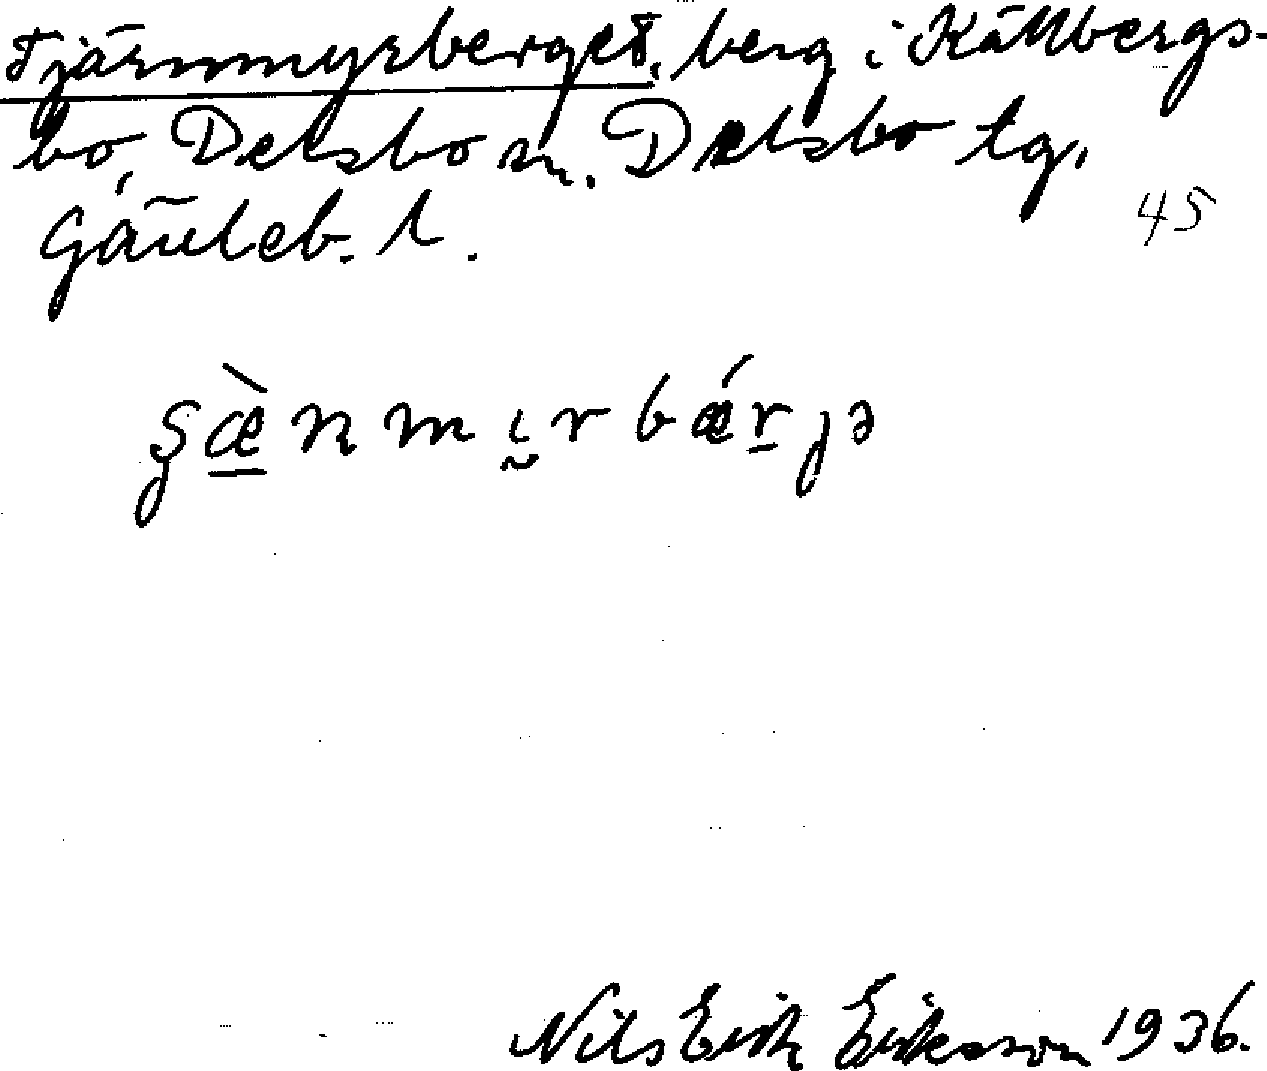 Tjärnmyrberget, berg i Källbergs-
bo, Delsbo sn. Delsbo tg.
Gävleb. l.
45
ʂæ̀nmı̰rbǽrjə
Nils Erik Eriksson 1936.